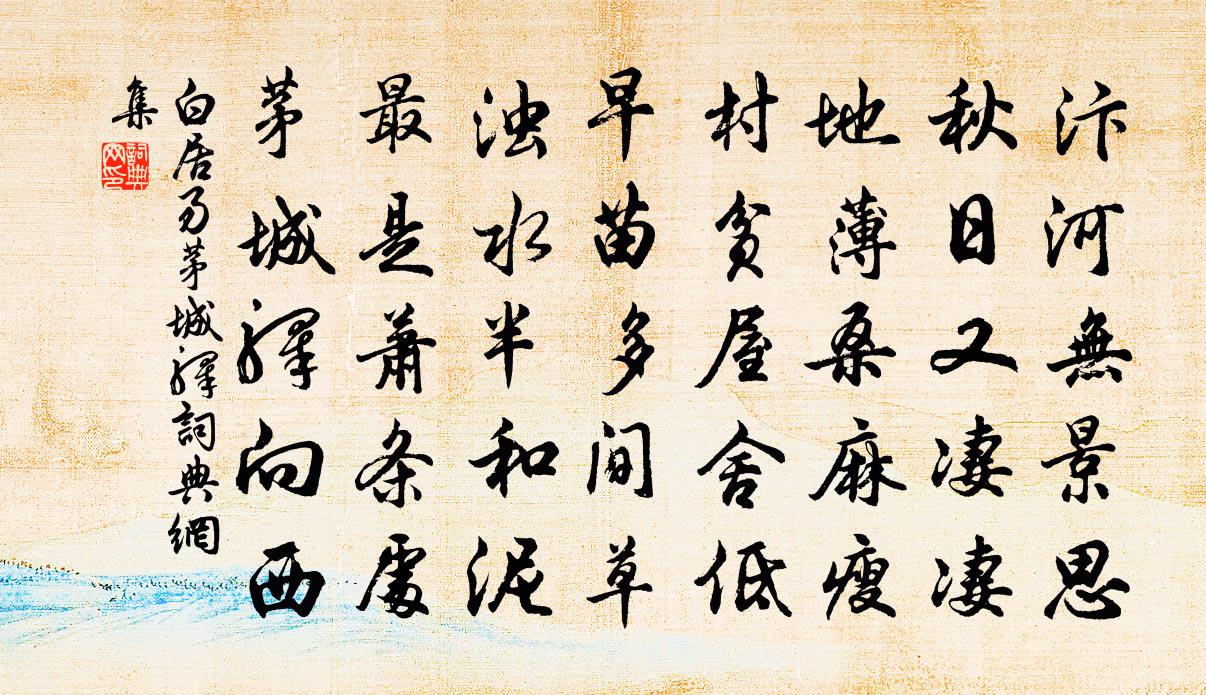 汴河無景思
秋日又淒淒
地薄桑麻瘦
村貧屋舍低
早苗多間草
浊水半和泥
最是萧条處
茅城驛向西
白居易茅城驛詞典網
集
詞典網印